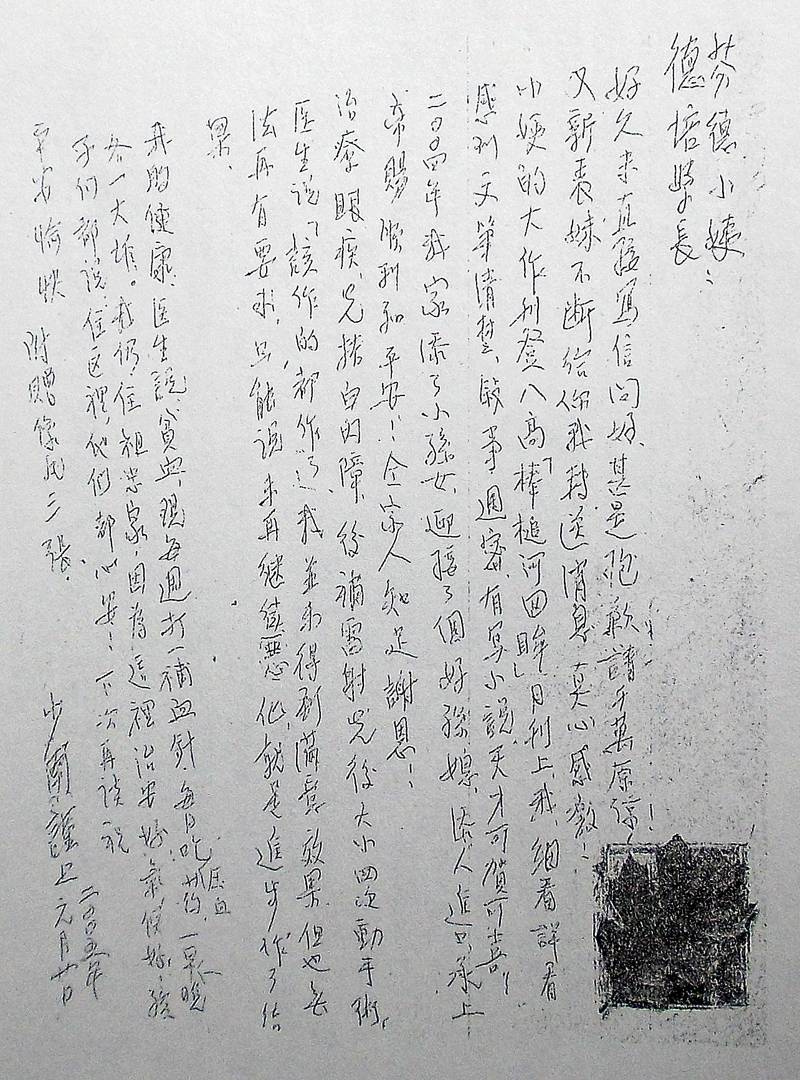 芬德小姨：
德培學長
好久未直接寫信问好、甚是抱歉請千萬原諒！
又新表妹不断给你我轉送消息真心感激！
小姨的大作刊登八高「棒槌河回眸」月刊上，我細看詳看
感到文筆清楚、敍事週密、有寫小說天才可賀可喜！
二00四年我家添了小孫女，迎接了個好孫媳，添人進口，承上
帝賜順利和平安！全家人知足謝恩！
治療眼疾，先拔白内障，後補雷射，先後大小四次動手術，
医生說「該作的都作了」我並未得到滿意效果，但也無
法再有要求，只能说未再继续惡化，就是進步作了结
果。
我的健康，医生說貧血，現每週打一補血針 每日吃壓血药，一早一晚
各一大堆。我仍住祖忠家，因為這裡治安好氣候好，孩
子们都說，住这裡，他们都心安！下次再谈 祝
平安愉快 附贈像片三張。
少蘭謹上 二00五年元月廿日